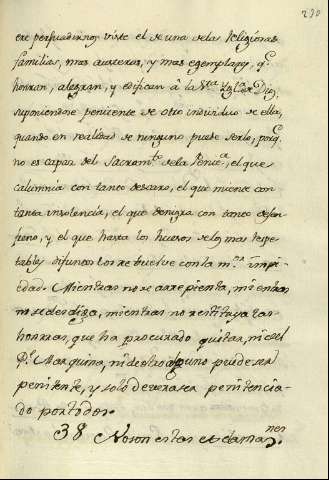 230
ere persuadirnos viste el de una de las Religiosas
familias, mas austeras, y mas egemplares, q.e
honran, alegran, y edifican â la S.ta Igl.a de Dios,
suponiendose penitente de otro individuo de ella,
quando en realidad de ninguno puede serlo, porq.e
no es capaz del Sacram.to de la Penit.a, el que
calumnia con tanto descaro, el que miente con
tanta insolencia, el que denigra con tanto desen
freno, y el que hasta los huesos de los mas respe
tables difuntos los rebuelve con la m.r impi-
edad. Mientras no se arrepienta, mientras
no se desdiga, mientras no restituya las
honrras, que ha procurado quitar, ni del
P.e Marquina, ni de otro alguno puede ser
penitente, y solo deverá ser penitencia-
do por todos.
38 No son estas exclama
nes